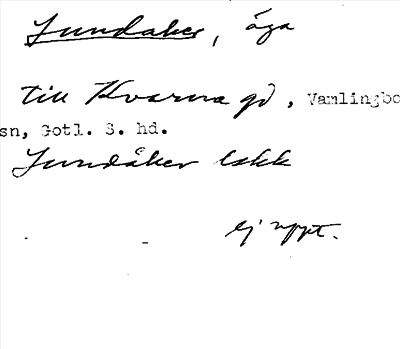 Sundaker, äga
till Kvarna gd, Vamlingbo
sn, Gotl. S. hd.
Sundåker Eskk
ej uppt.